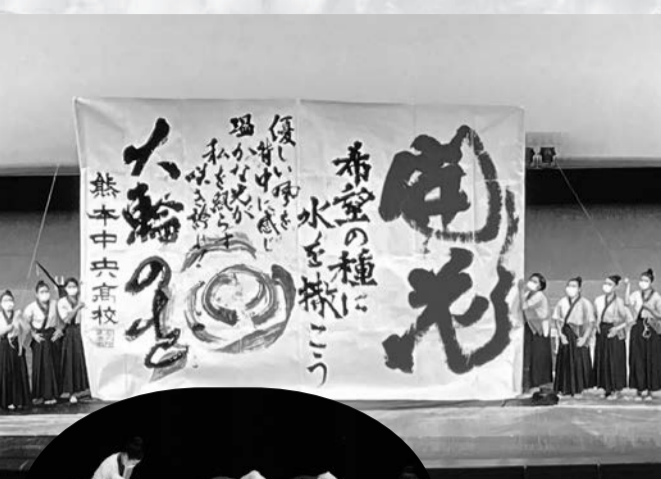 開花
希望の種に
水を撒こう
優しい風を
背中に感じ
温かな光が
私を照らす
咲き誇れ
大輪の花
熊本中央高校